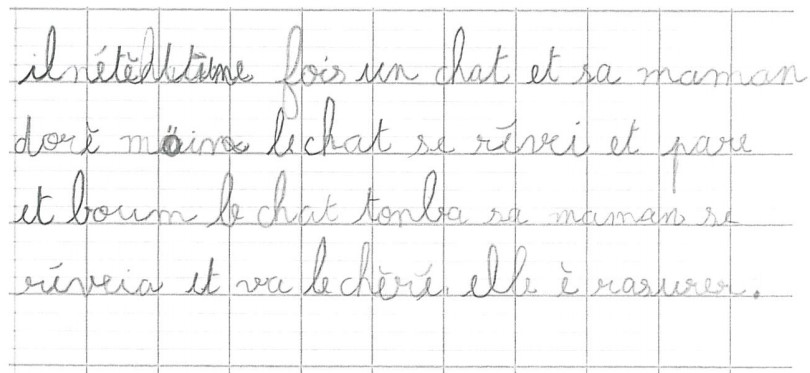 il nétè une fois un chat et sa maman
dorè möins le chat se révri et pare
et boum le chat tonba sa maman se
réveia et va le chèré. elle è rasurer.